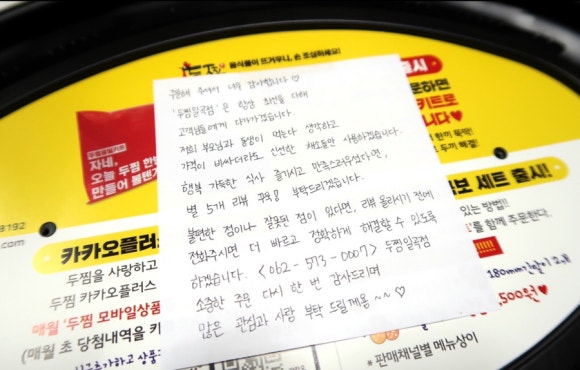 음식물이 뜨거우니, 손 조심하세요!
주문해 주셔서 너무 감사합니다 ♡
'두찜일곡점' 은 항상 최선을 다해
고객님들에게 다가가겠습니다.
저희 부모님과 동생이 먹는다 생각하고
가격이 비싸더라도 신선한 채소들만 사용하겠습니다.
행복 가득한 식사 즐기시고 만족스러우셨다면,
별 5개 리뷰 꾸욱! 부탁드리겠습니다.
불편한 점이나 잘못된 점이 있다면, 리뷰 올리시기 전에
전화주시면 더 빠르고 정확하게 해결할 수 있도록
하겠습니다. <062-573-0007> 두찜일곡점
소중한 주문 다시 한 번 감사드리며
많은 관심과 사랑 부탁 드릴게용 ~~ ♡
자네,
오늘 두찜 한번
만들어 볼텐가
8192
.com
카카오플러스
두찜을 사랑하고
두찜 카카오플러스
매월 '두찜 모바일상품
(매월 초 당첨내역을 카
출시
문하면
키트로
니다♥
세트 출시!
있는 방법!!
를 함께 주문한다.
180mm
,500원♥
* 판매채널별 메뉴상이